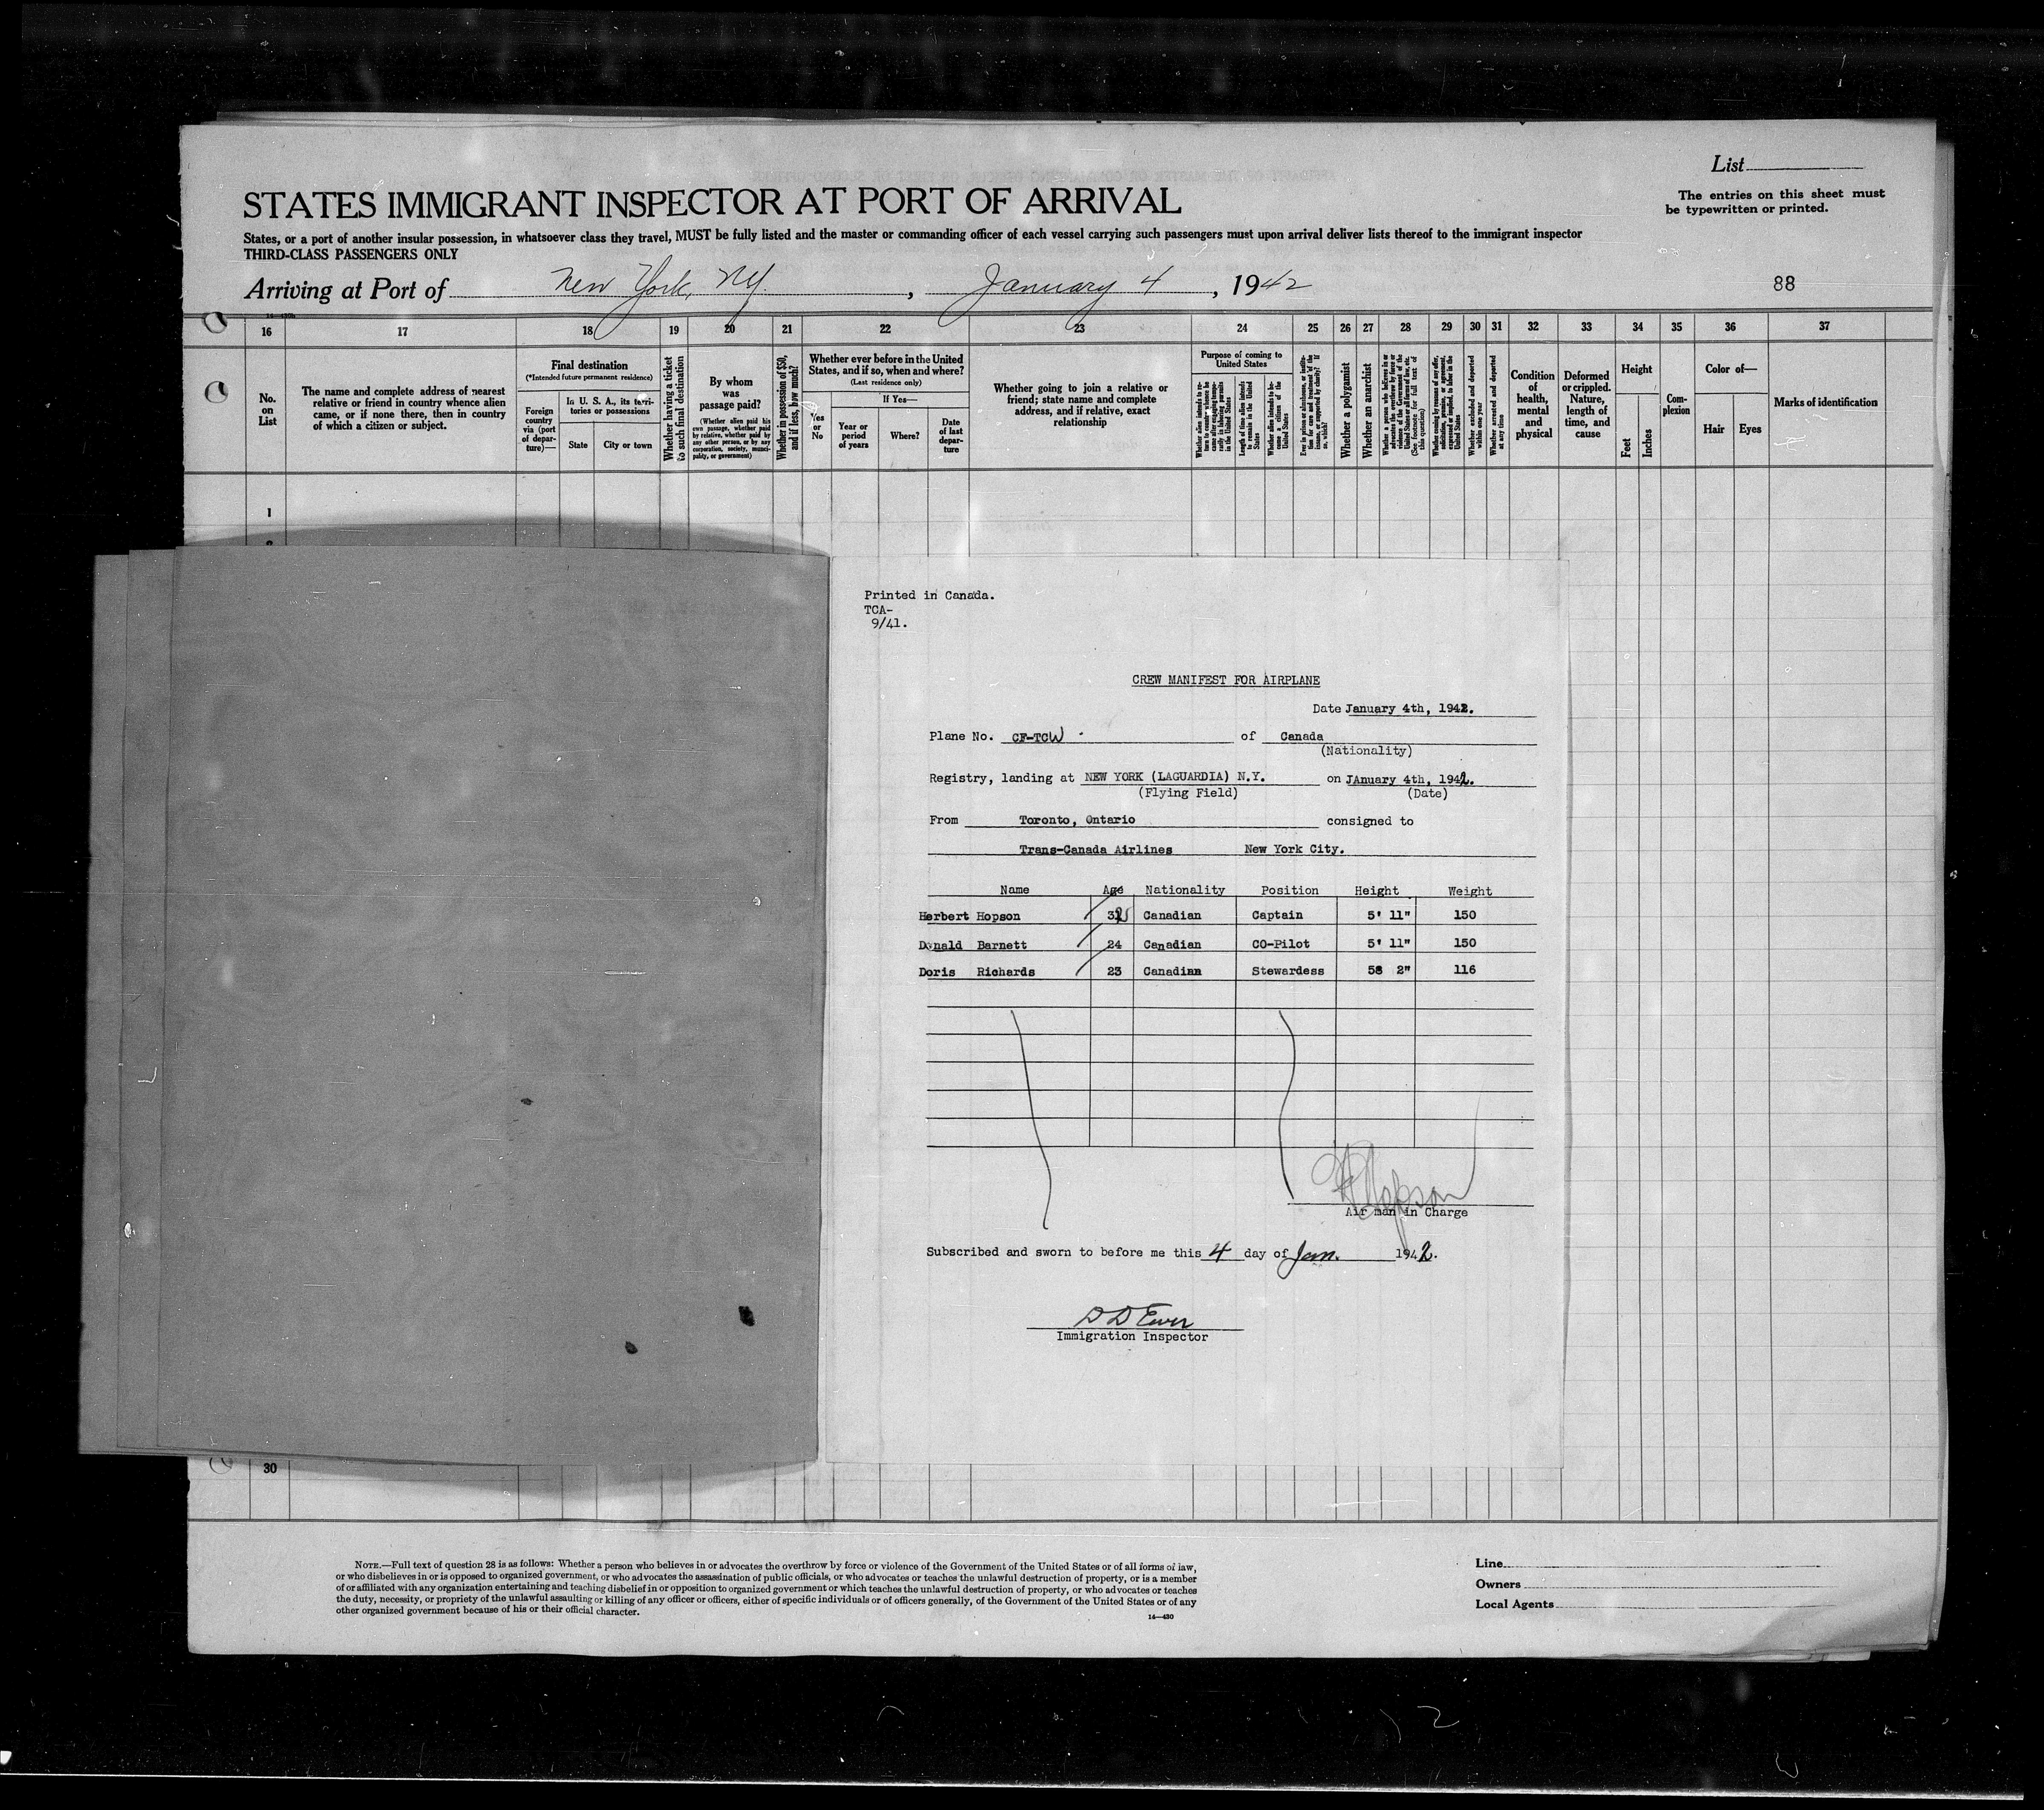 List
The entries on this sheet must
be typewritten or printed.
STATES IMMIGRANT INSPECTOR AT PORT OF ARRIVAL
States, or a port of another insular possession, in whatsoever class they travel, MUST be fully listed and the master or commanding officer of each vessel carrying such passengers must upon arrival deliver lists thereof to the immigrant inspector
THIRD-CLASS PASSENGERS ONLY
Arriving at Port of New York, NY. , January 4 , 1942
88
16 17 18 19 20 21 22 23 24 25 26 27 28 29 30 31 32 33 34 35 36 37
No.
on
List
The name and complete address of nearest
relative or friend in country whence alien
came, or if none there, then in country
of which a citizen or subject.
Final destination
(*Intended future permanent residence)
Foreign
country
via (port
of depar-
ture)—
In U. S. A., its terri-
tories or possessions
State
City or town
Whether having a ticket
to such final destination
By whom
was
passage paid?
(Whether alien paid his
own passage, whether paid
by relative, whether paid by
any other person, or by any
corporation, society, munici-
pality, or government)
Whether in possession of $50,
and if less, how much?
Whether ever before in the United
States, and if so, when and where?
(Last residence only)
Yes
or
No
If Yes—
Year or
period
of years
Where?
Date
of last
depar-
ture
Whether going to join a relative or
friend; state name and complete
address, and if relative, exact
relationship
Purpose of coming to
United States
Length of time alien intends
to remain in the United
States
Whether alien intends to be-
come a citizen of the
United States
Whether a polygamist
Whether an anarchist
Whether excluded and deported
within one year
Whether arrested and deported
at any time
Condition
of
health,
mental
and
physical
Deformed
or crippled.
Nature,
length of
time, and
cause
Height
Feet
Inches
Com-
plexion
Color of—
Hair
Eyes
Marks of identification
1
Printed in Canada.
TCA-
9/41.
CREW MANIFEST FOR AIRPLANE
Date January 4th, 1942.
Plane No. CF-TCW of Canada
(Nationality)
Registry, landing at NEW YORK (LAGUARDIA) N.Y. on JAnuary 4th, 1942.
(Flying Field) (Date)
From Toronto, Ontario consigned to
Trans-Canada Airlines New York City.
Name Age Nationality Position Height Weight
Herbert Hopson Canadian Captain 5' 11" 150
Donald Barnett 24 Canadian CO-Pilot 5' 11" 150
Doris Richards 23 Canadian Stewardess 58 2" 116
Hopson
Air man in Charge
Subscribed and sworn to before me this 4 day of Jan. 1942.
D D Ewer
Immigration Inspector
30
NOTE.—Full text of question 28 is as follows: Whether a person who believes in or advocates the overthrow by force or violence of the Government of the United States or of all forms of law,
or who disbelieves in or is opposed to organized government, or who advocates the assassination of public officials, or who advocates or teaches the unlawful destruction of property, or is a member
of or affiliated with any organization entertaining and teaching disbelief in or opposition to organized government or which teaches the unlawful destruction of property, or who advocates or teaches
the duty, necessity, or propriety of the unlawful assaulting or killing of any officer or officers, either of specific individuals or of officers generally, of the Government of the United States or of any
other organized government because of his or their official character.
14—430
Line
Owners
Local Agents